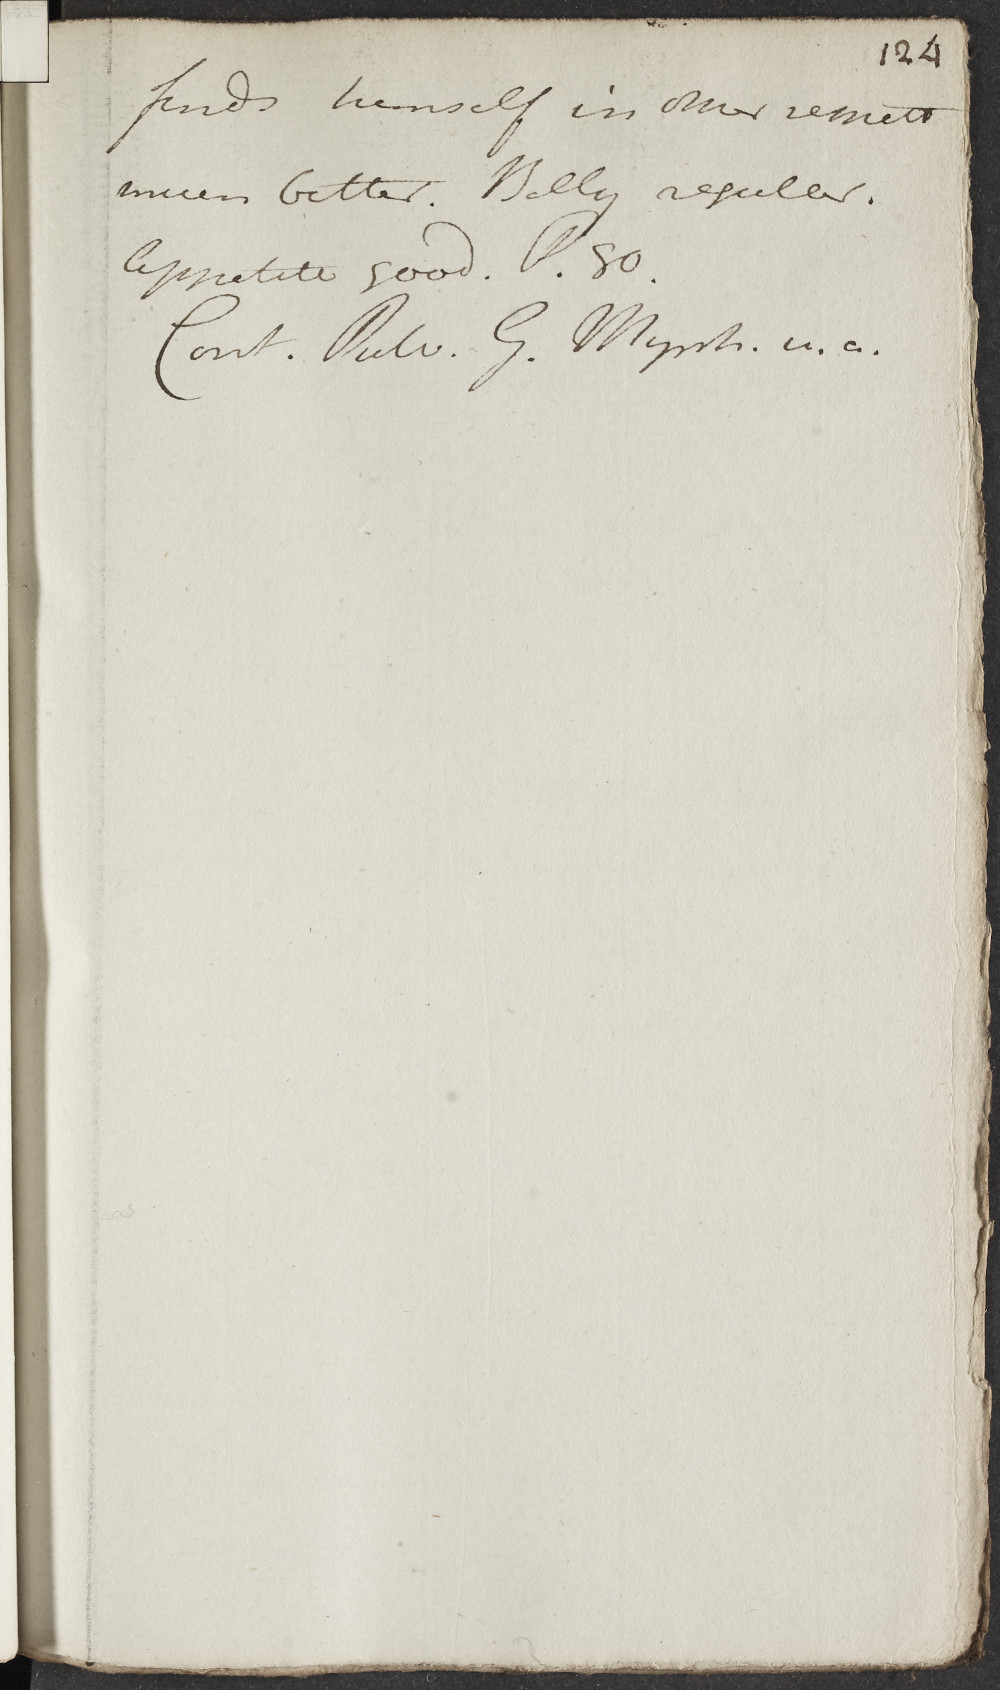 124
finds himself in other respects
much better. Belly regular.
Appetite good. P. 80.
Cont. Pulv. G. Myrrh. u. a.